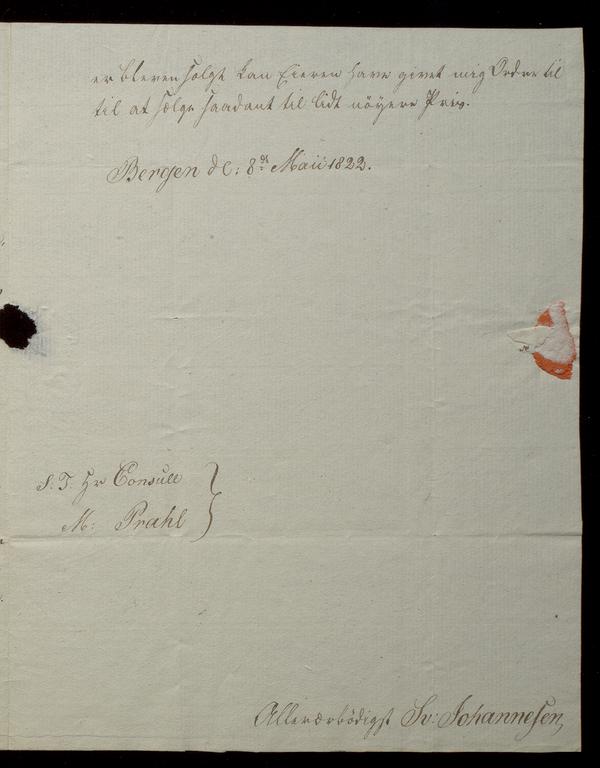 er bleven solgt kan Eieren have givet mig Ordre til
til at sælge saadant til lidt nöyere Priis.
Bergen de: 8de Maii 1822.
S: T: Hr Consull
M: Prahl
Allerærbödigst Sv: Johannesen,